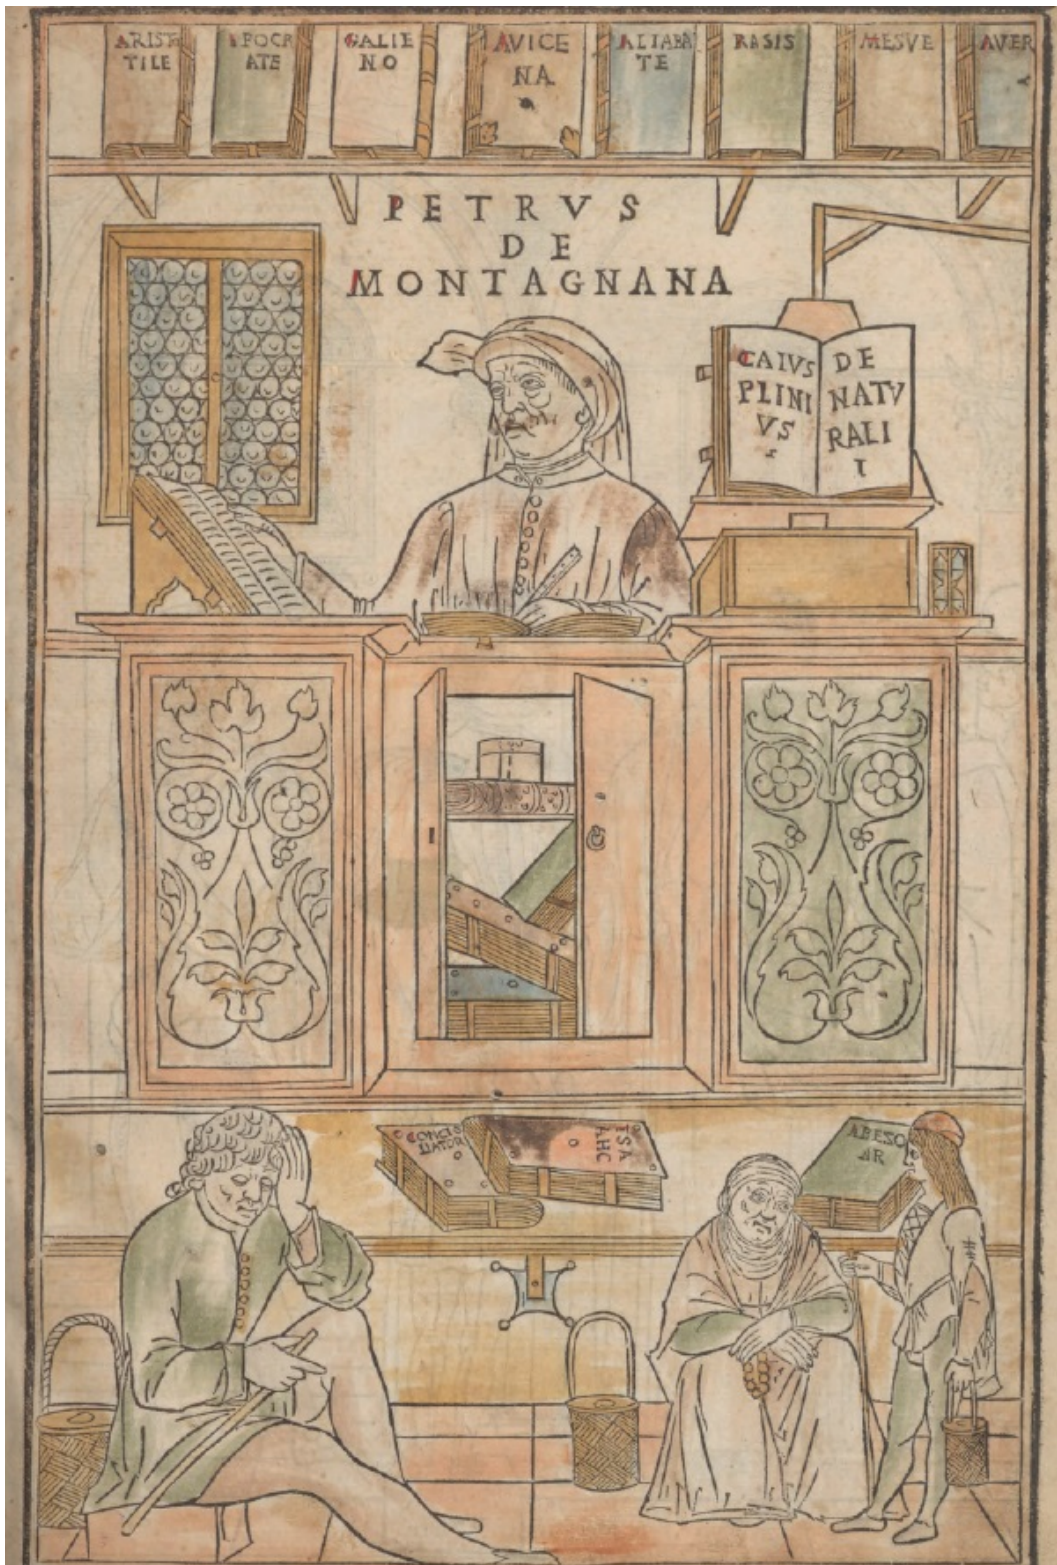 ARISTO
TILE
IPOCR
ATE
GALIE
NO
AVICE
NA
ALIABA
TE
RASIS
MESVE
AVER
PETRVS
DE
MONTAGNANA
CAIVS
PLINI
VS
DE
NATV
RALI
I
CONCI
LIATOR
ISA
AHC
ABESO
AR